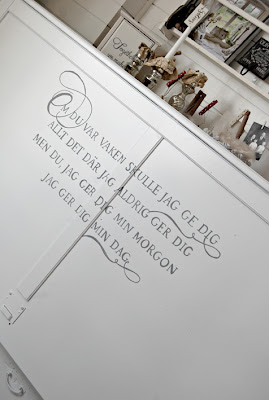 Together
OM DU VAR VAKEN SKULLE JAG GE DIG
ALLT DET DÄR JAG ALDRIG GER DIG
MEN DU, JAG GER DIG MIN MORGON
JAG GER DIG MIN DAG